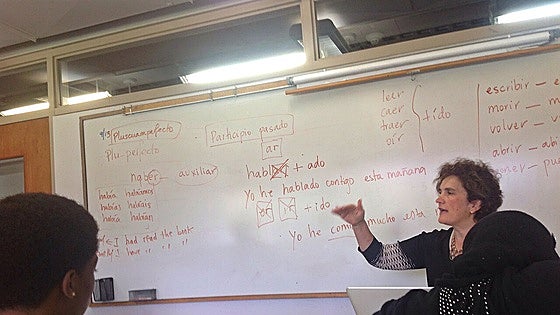 9/13 Pluscuamperfecto
Plu-perfecto
haber — auxiliar
había habíamos
habías habíais
había habían
I had read the book
I have " " "
Participio pasado
ar
hablar + ado
Yo he hablado contigo esta mañana
er ir + ido
Yo he comido mucho esta
leer
caer
traer
oir
+ ído
escribir —
morir —
volver —
abrir —
poner —